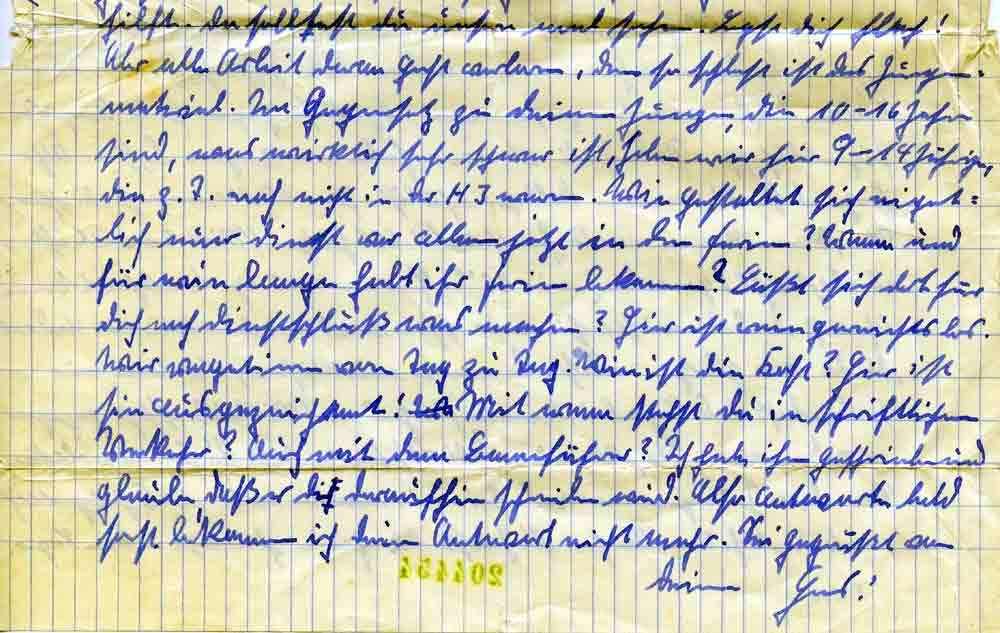 hilft. Da solltest du unsern mal sehen. Legst dich flach!
Aber alle Arbeit daran geht verloren, denn so schlecht ist das Jungen-
material. Im Gegensatz zu deinen Jungen, die 10-16 Jahre
sind, was wirklich sehr schwer ist, haben wir hier 9-14 jährige,
die z. T. noch nicht in der HJ waren. Wie gestaltet sich eigent=
lich euer Dienst vor allem jetzt in den Ferien? Wann und
für wie lange habt ihr Ferien bekommen? Läßt sich dort für
dich nach Dienstschluß was machen? Hier ist wenig nichts los.
Wir vegetieren von Tag zu Tag. Wie ist die Kost? Hier ist
sie ausgezeichnet! Mit wem stehst du in schriftlichem
Verkehr? Auch mit dem Bannführer? Ich habe ihm geschrieben und
glaube, daß er dir daraufhin schreiben wird. Also antworte bald
sonst bekomme ich deine Antwort nicht mehr. Sei gegrüßt von
deinem
204454